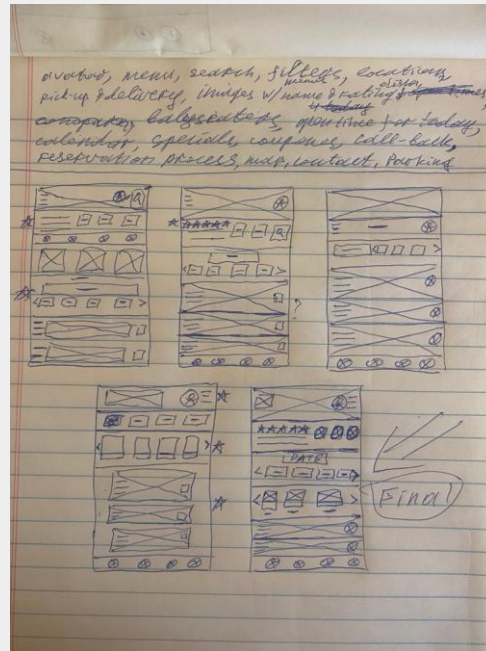 avatar, menu, search, filters, locations,
pick-up & delivery, images w/ name & rating &
menus
distan
today
company, open time for today,
calendar, specials, coupones, call-back,
reservation process, map, contact, Parking
?
DATE
Final